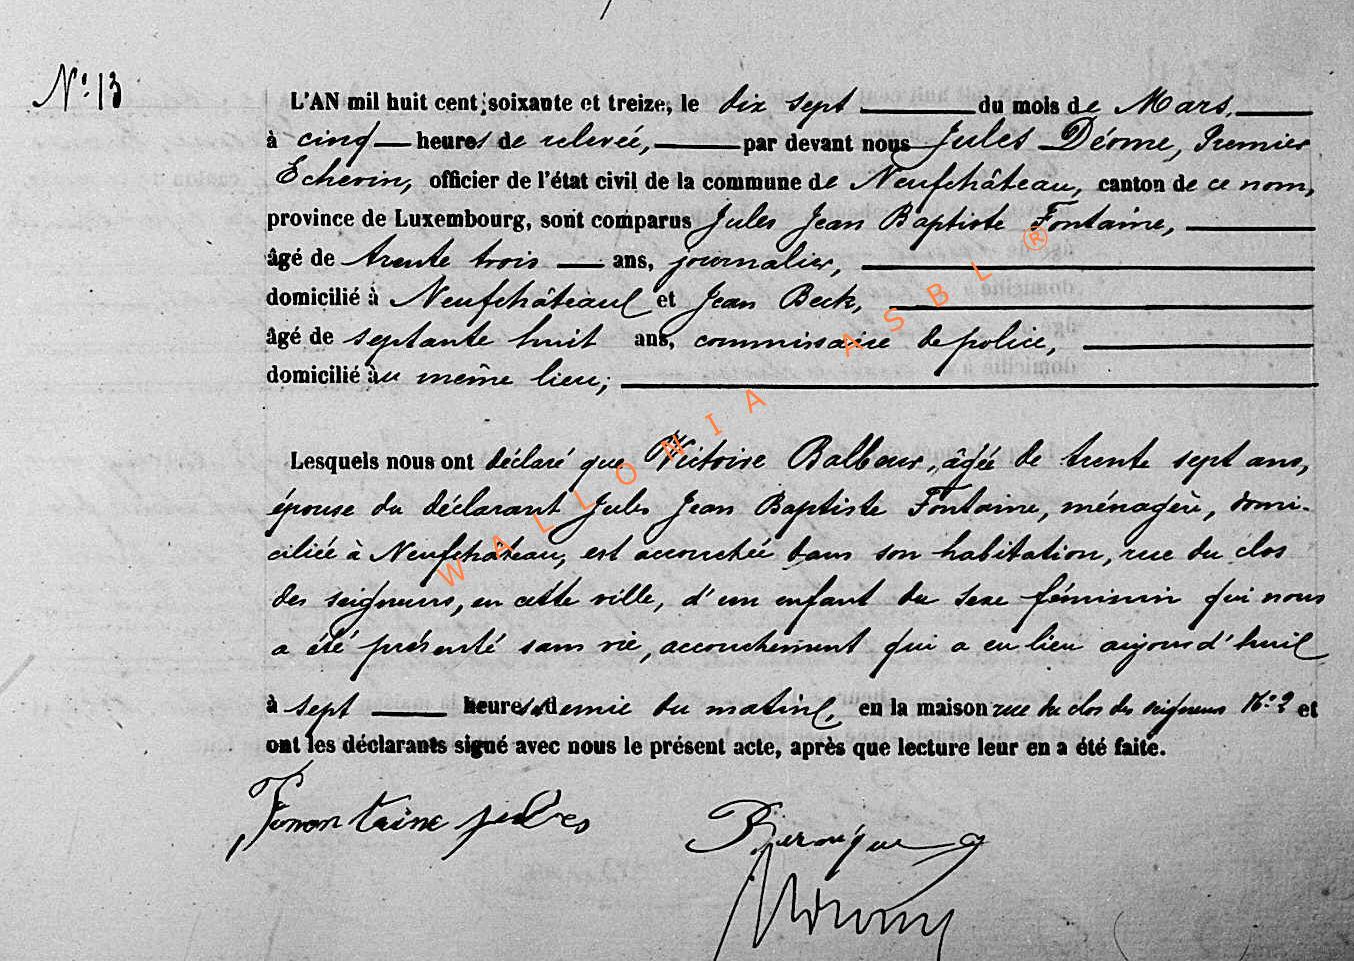 N° 13
L'AN mil huit cent soixante et treize, le dix sept du mois de Mars,
à cinq heures de relevée, par devant nous Jules Déome, Premier
Echevin, officier de l'état civil de la commune de Neufchâteau, canton de ce nom,
province de Luxembourg, sont comparus Jules Jean Baptiste Fontaine,
âgé de trente trois ans, journalier,
domicilié à Neufchâteau et Jean Beck,
âgé de septante huit ans, commissaire de police,
domicilié au même lieu;
Lesquels nous ont déclaré que Victoire Balbeur, âgée de trente sept ans,
épouse du déclarant Jules Jean Baptiste Fontaine, ménagère, domi-
ciliée à Neufchâteau, est accouchée dans son habitation, rue du clos
des seigneurs, en cette ville, d'un enfant du sexe féminin qui nous
a été présenté sans vie, accouchement qui a eu lieu aujourd'hui
à sept heures et demie du matin, en la maison rue du clos des seigneurs N° 2 et
ont les déclarants signé avec nous le présent acte, après que lecture leur en a été faite.
WALLONIA ASBL ®